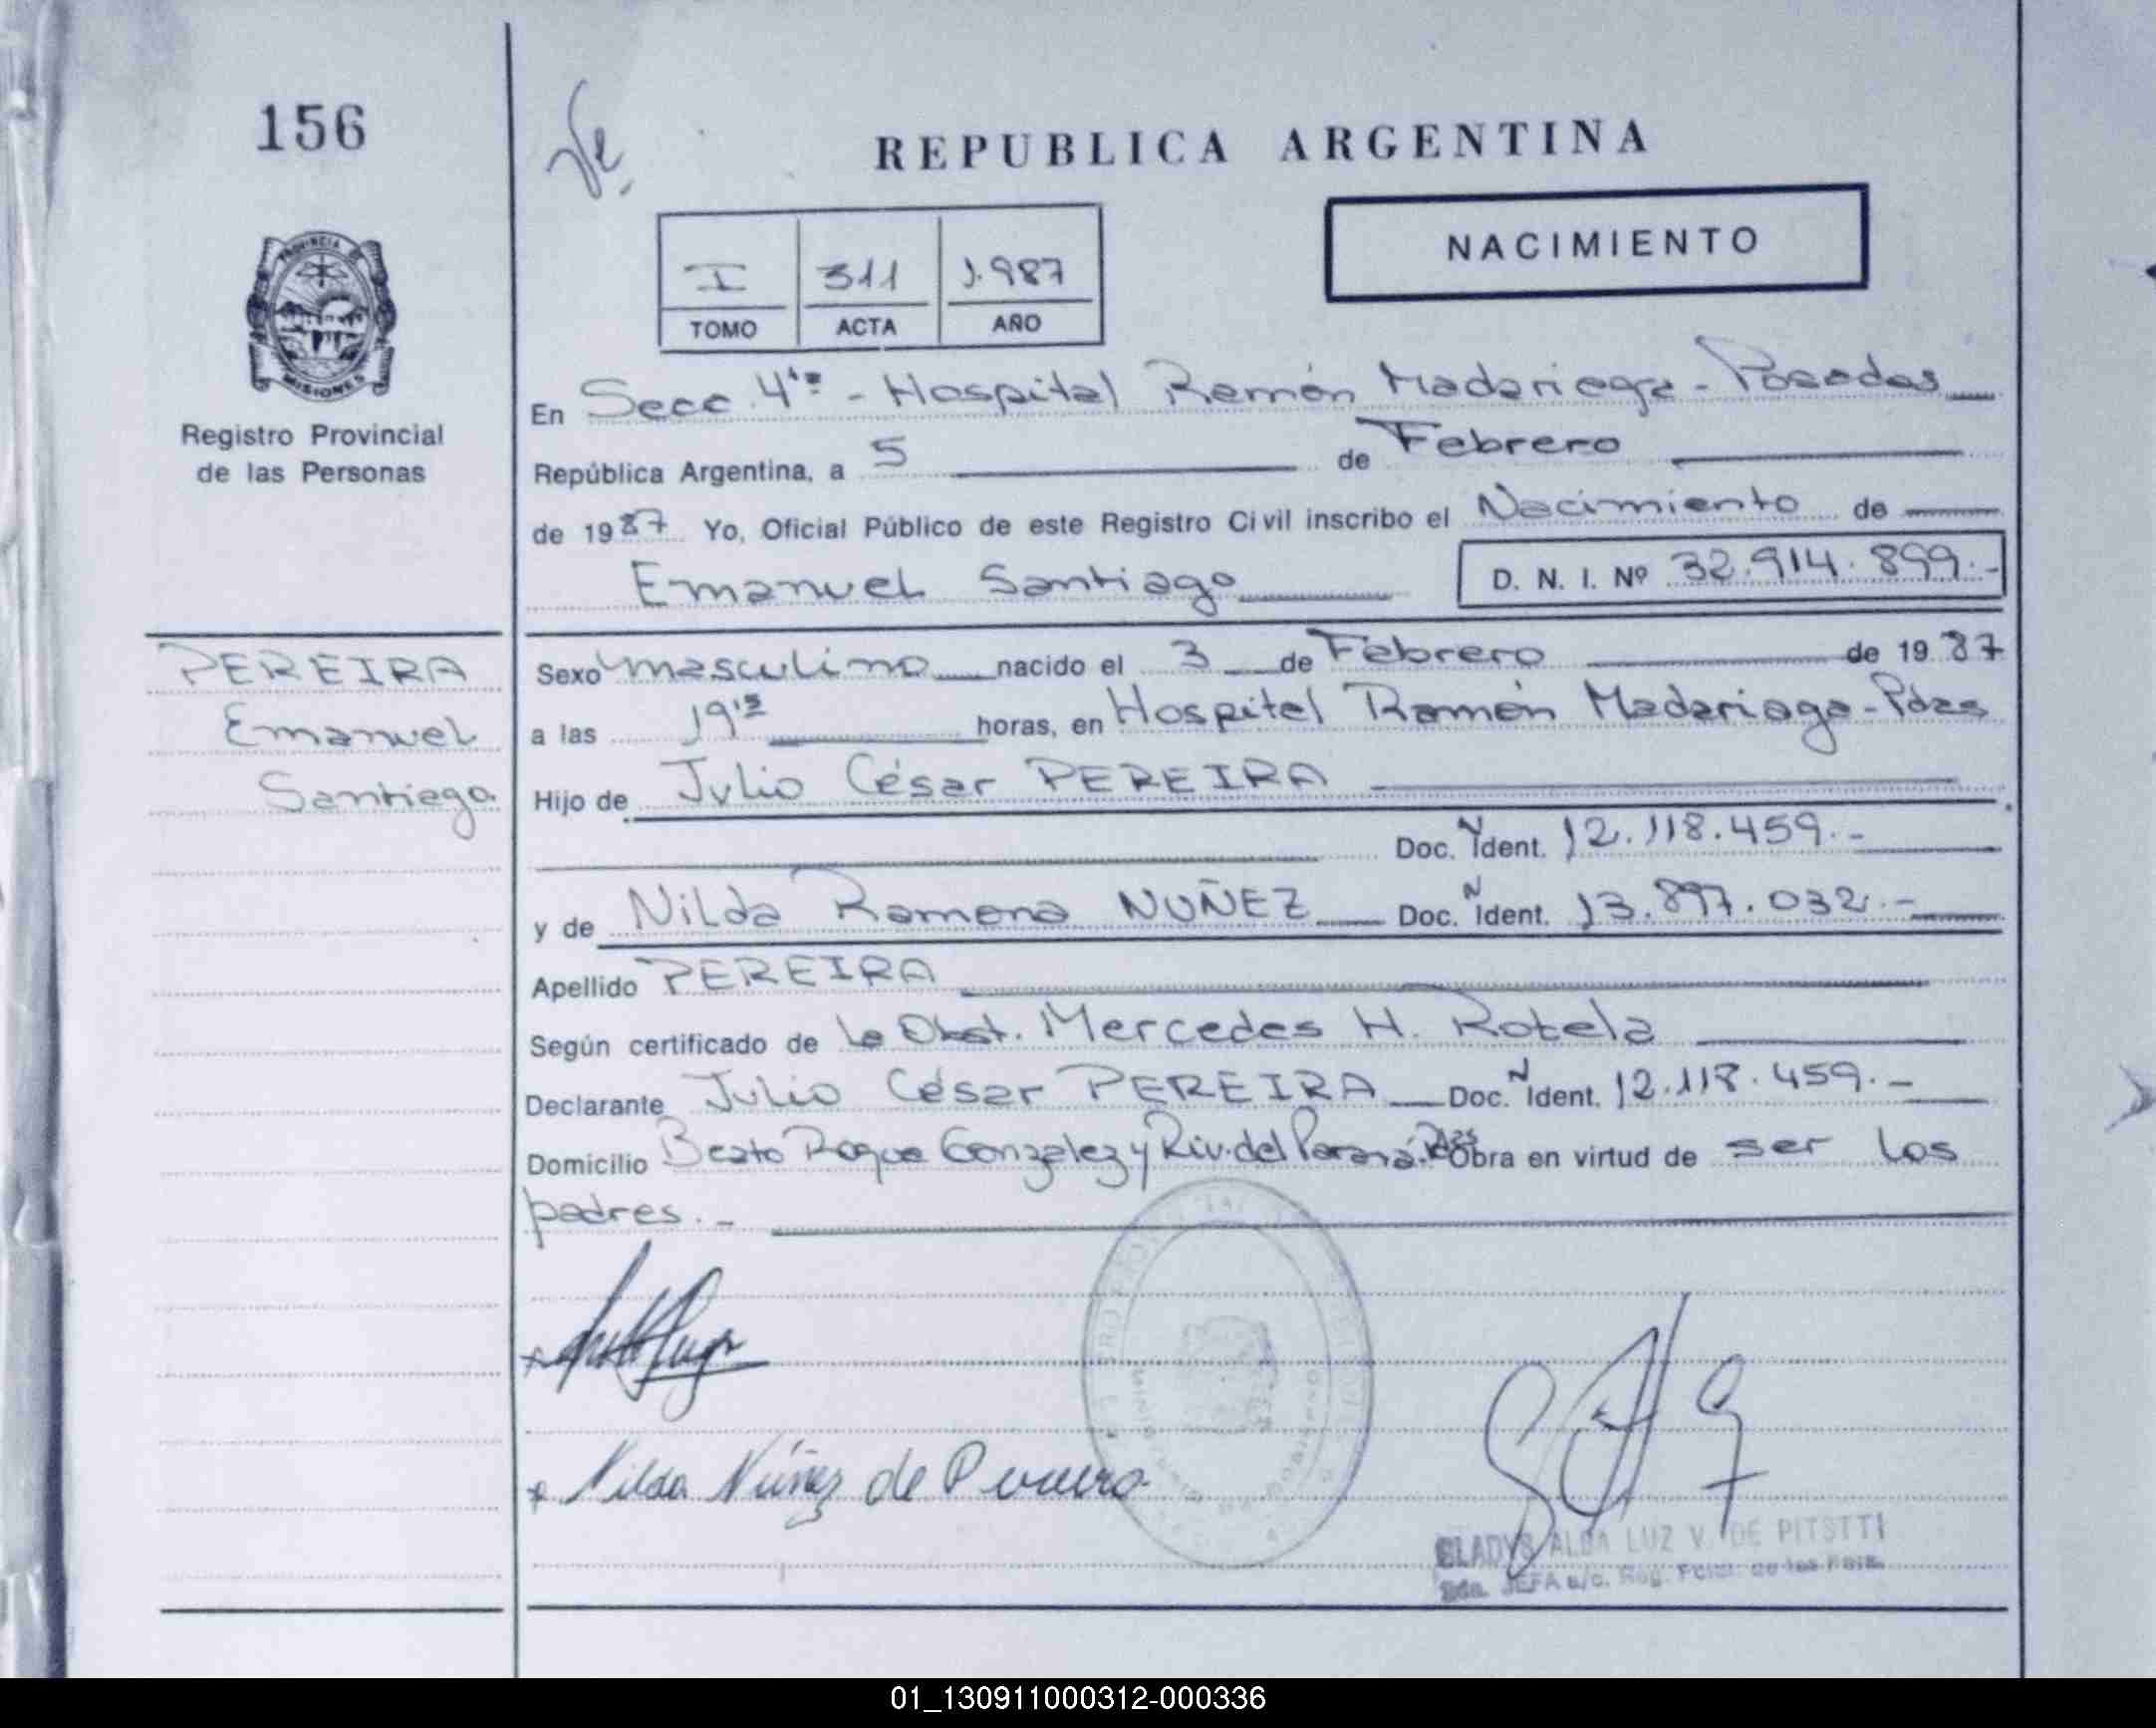 156
REPUBLICA ARGENTINA
PROVINCIA
MISIONES
Registro Provincial
de las Personas
I 311 1.987
TOMO ACTA AÑO
NACIMIENTO
En Secc. 4ta - Hospital Ramón Madariaga - Posadas
República Argentina, a 5 de Febrero
de 1987 Yo, Oficial Público de este Registro Civil inscribo el Nacimiento de
Emanuel Santiago D. N. I. Nº 32.914.899.-
PEREIRA
Emanuel
Santiago
Sexo masculino nacido el 3 de Febrero de 1987
a las 19'15 horas, en Hospital Ramón Madariaga - Pdas
Hijo de Julio César PEREIRA
Doc. N Ident. 12.118.459.-
y de Nilda Ramona NUÑEZ Doc. N Ident. 13.897.032.-
Apellido PEREIRA
Según certificado de la Obst. Mercedes H. Rotela
Declarante Julio César PEREIRA Doc. N Ident. 12.118.459.-
Domicilio Beato Roque Gonzalez y Riv. del Paraná. Pdas Obra en virtud de ser los
padres.-
Nilda Núñez de Pereira
GLADYS ALBA LUZ V. DE PITSTTI
JEFA a/c. Reg. Pcial. de las Pers.
01_130911000312-000336